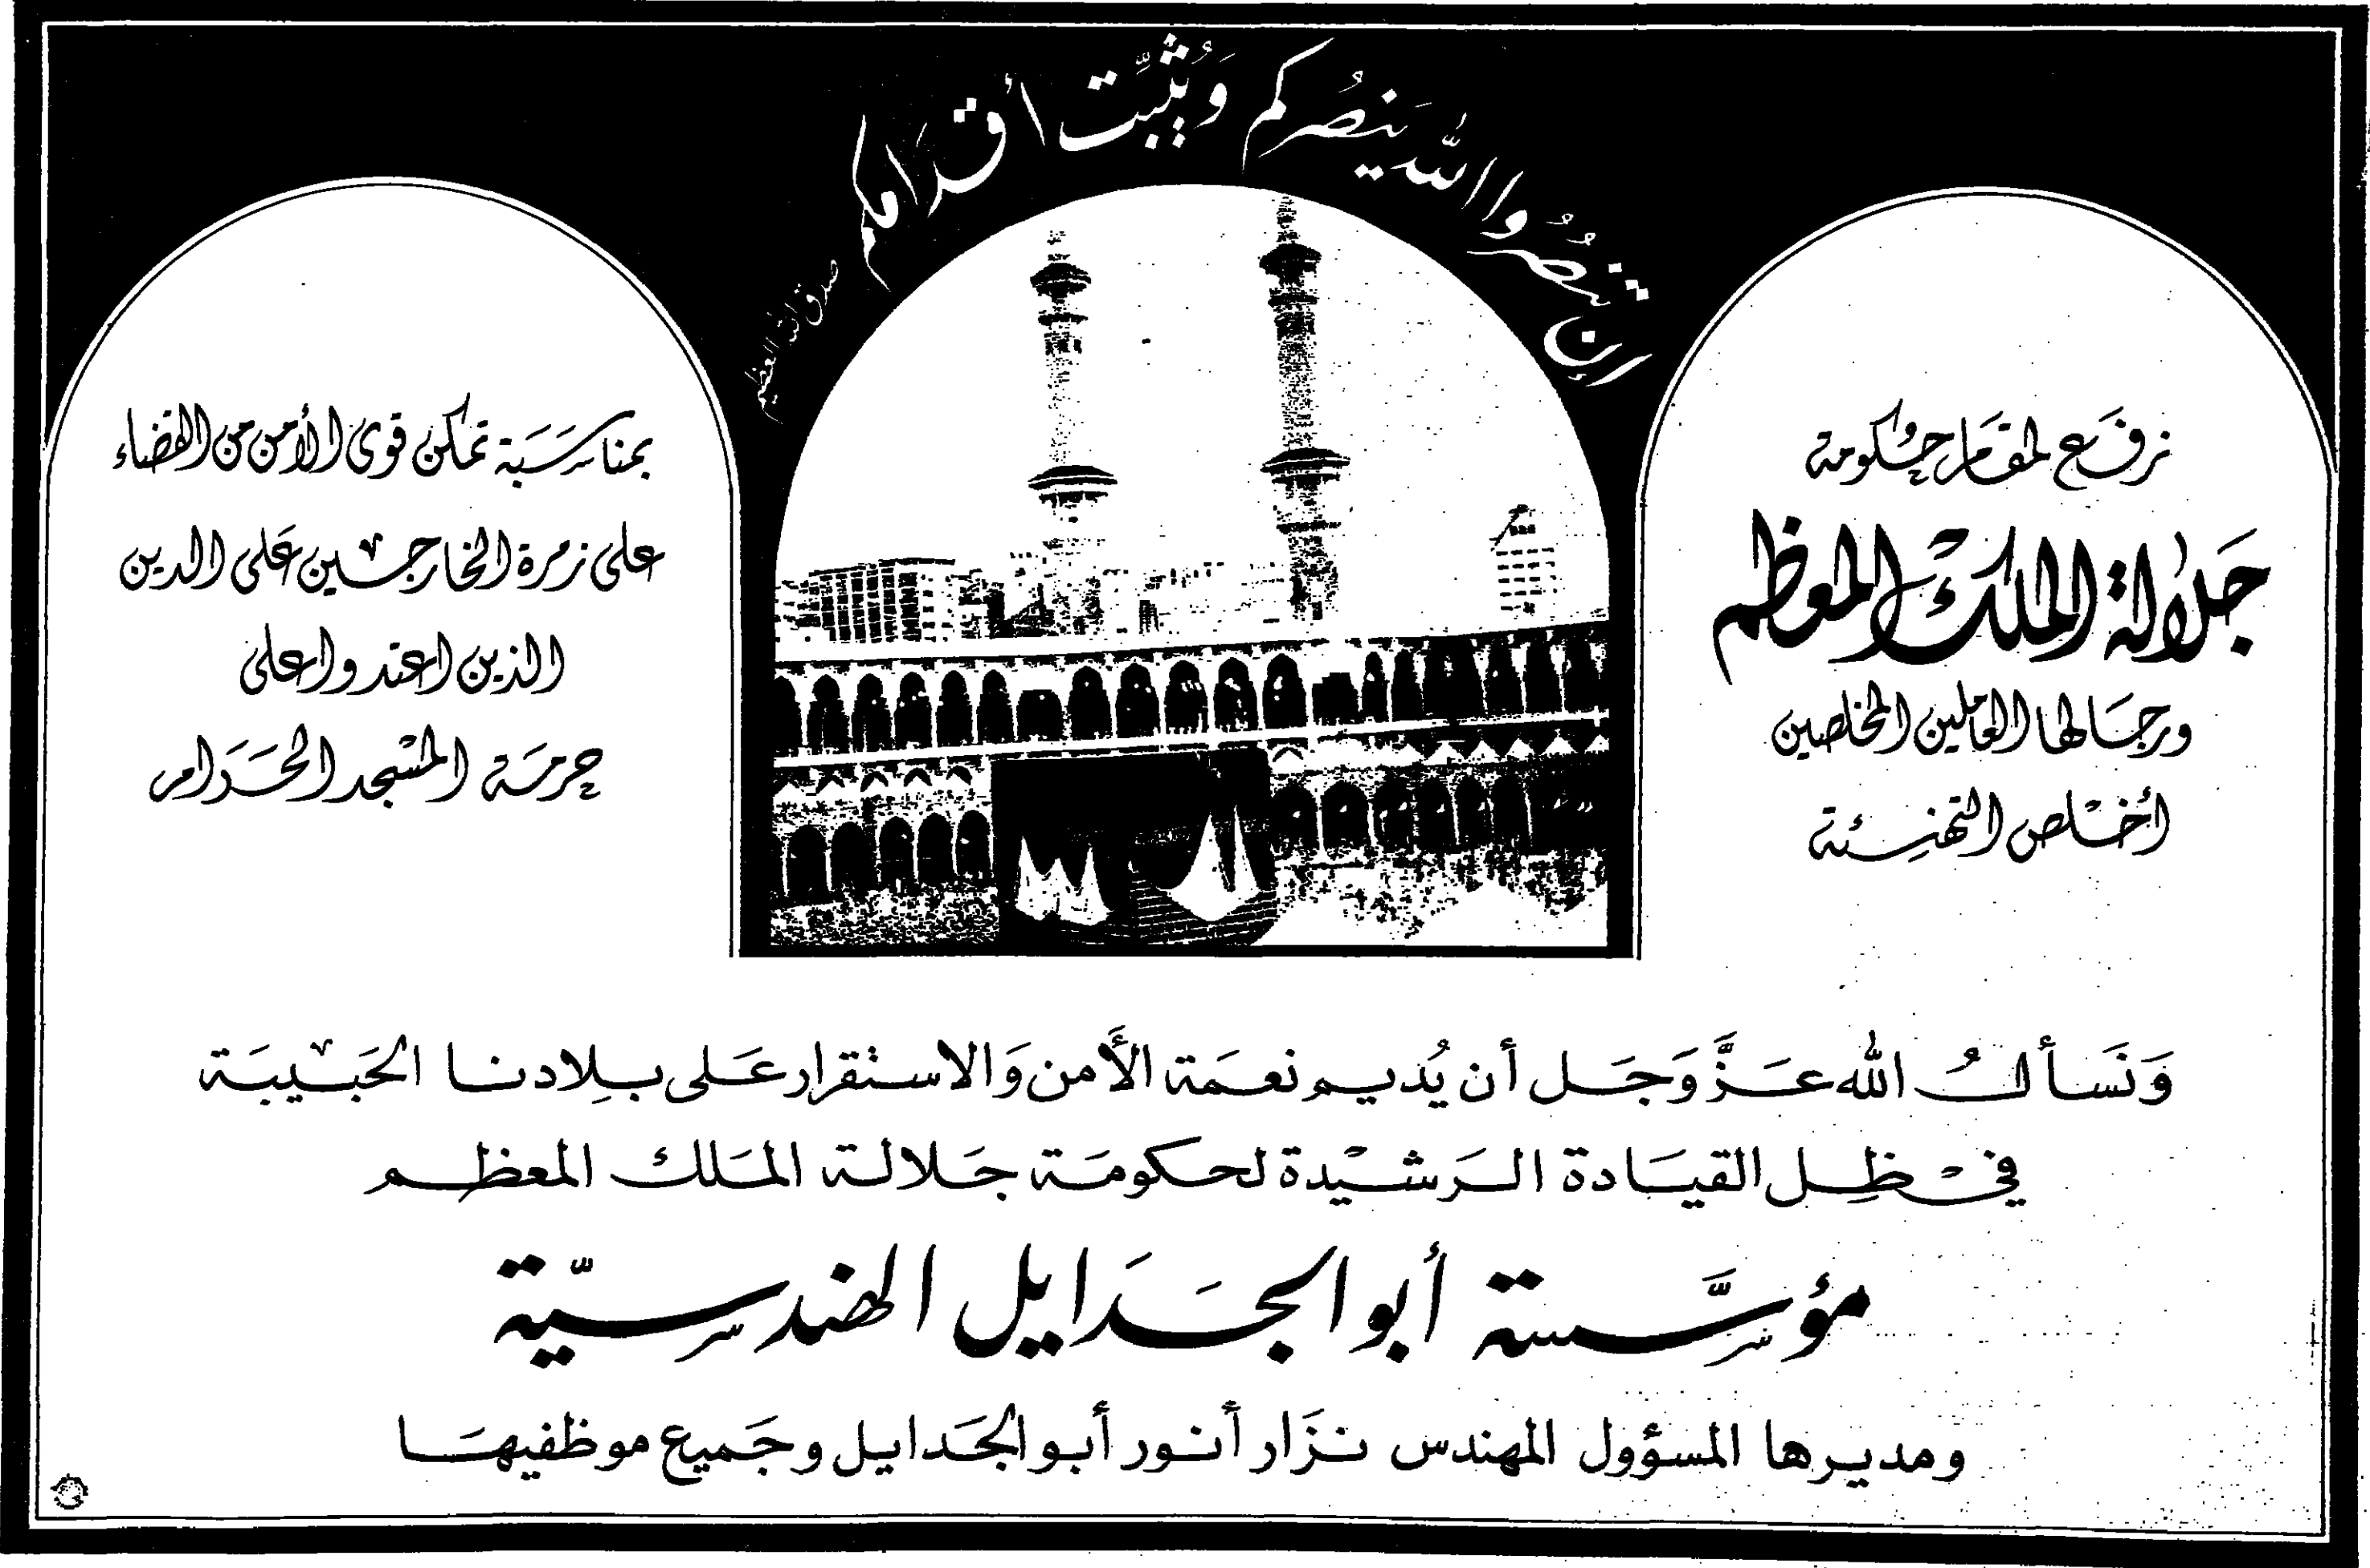 إن تنصُرُوا الله يَنصُركم وَيُثبِّت أقدامكم
صدق الله العظيم
نرفَع لمقَام حكومة
جَلالة الملكْ المعظم
ورجَالها العاملين المخلصين
أخلَص التهنِئة
بمناسَبَة تمكن قوى الأمن من القضاء
على زمرة الخارجين عَلى الدين
الذين اعتدوا على
حرمَة المسْجد الحَرَام
وَنَسأل الله عَزَّ وَجَل أن يُديم نعمَة الأَمن وَالاستقرار عَلى بِلادنا الحَبيبَة
في ظِل القيَادة الرَشيْدة لحكومَة جَلالة المَلك المعظم
مؤسَّسة أبو الجَدايل الهندسيّة
ومديرها المسؤول المهندس نزَار أنور أبو الجَدايل وجَميع موظفيهَا